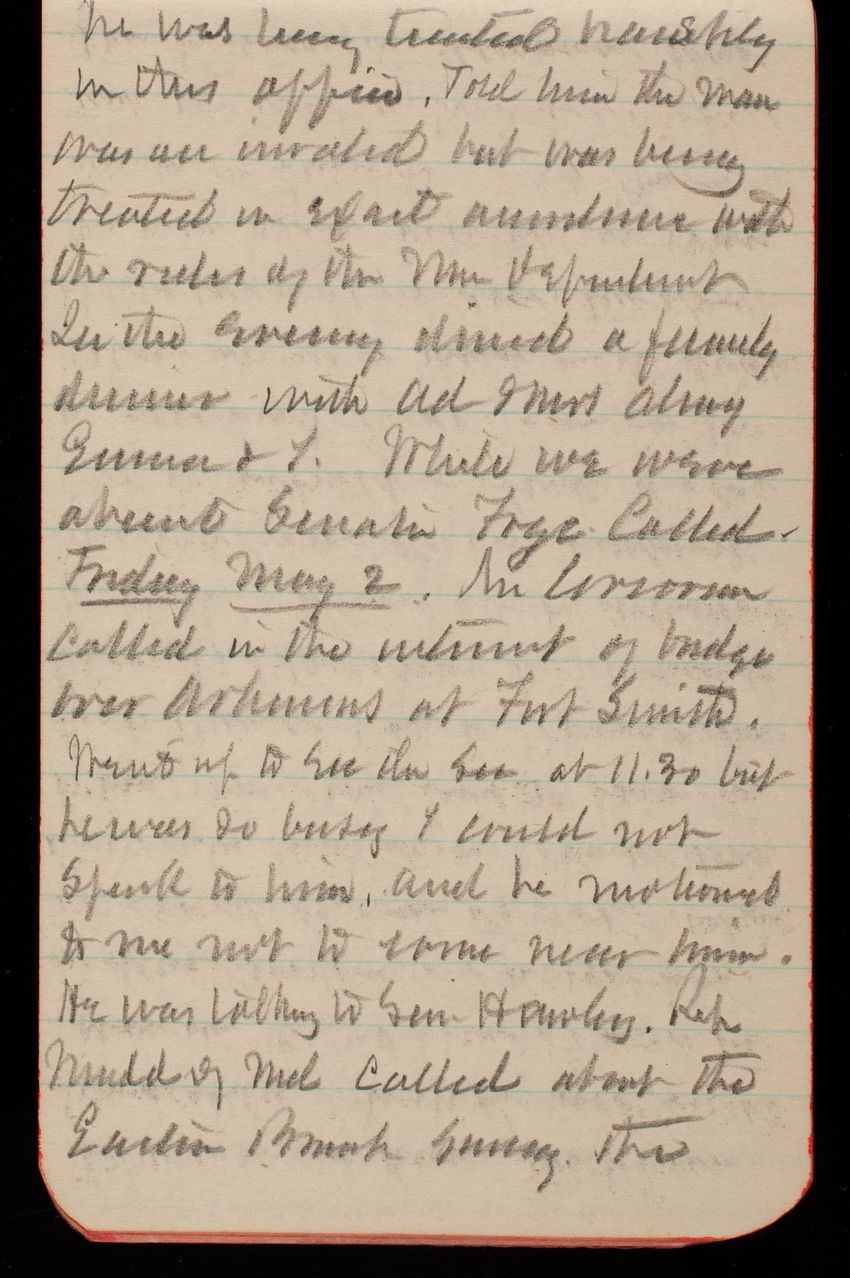 he was being treated harshly
in this office. Told him the man
was an invalid but was being
treated in exact accordance with
the rules of the War Department
In the evening dined a family
dinner with Ad & Mrs
Emma & I. While we were
absent Senator Frye Called.
Friday May 2. Mr Corcoran
Called in the interest of bridge
over Arkansas at Fort Smith.
Went up to see the Sec at 11.30 but
he was so busy I could not
speak to him, and he motioned
to me not to come near him.
He was talking to Gen Hawley. Rep
Mudd of Md called about the
Eastern Branch Survey. The